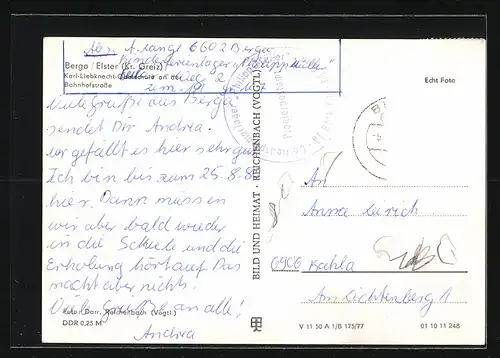 Abs. A. Lange 6602 Berga
Berga / Elster (Kr. Greiz)
Kinderferienlager
Karl-Liebknecht- an der
Bahnhofstraße
Echt Foto
Viele Grüße aus Berga
sendet Dir Andrea.
gefällt es hier sehr gut.
Ich bin bis zum 25.8.8
hier. Dann müssen
wir aber bald wieder
in die Schule und die
Erholung hört auf. Das
macht aber nichts.
Viele Grüße an alle!
Andrea
Foto: Darr, Reichenbach (Vogtl.)
DDR 0,25 M
BILD UND HEIMAT · REICHENBACH (VOGTL)
An
Anna
6906 Kahla
Am Lichtenberg 1
V 11 50 A 1/B 175/77
01 10 11 248